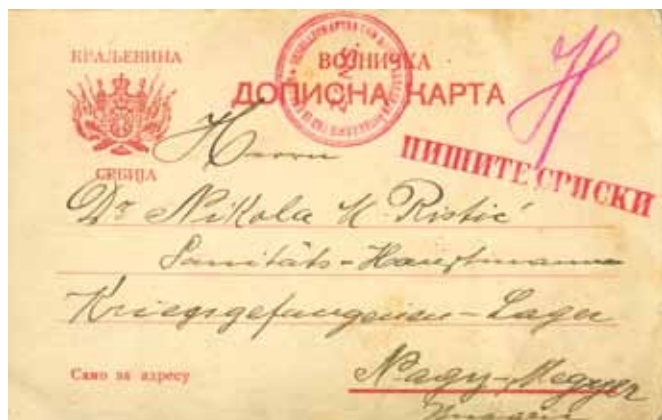 КРАЉЕВИНА
СРБИЈА
ВОЈНИЧКА
ДОПИСНА КАРТА
Н
ПИШИТЕ СРПСКИ
Herrn
Dr Nikola K. Ristić
Sanitäts-Hauptmann
Kriegsgefangenen-Lager
Само за адресу
Nagy-Megyer